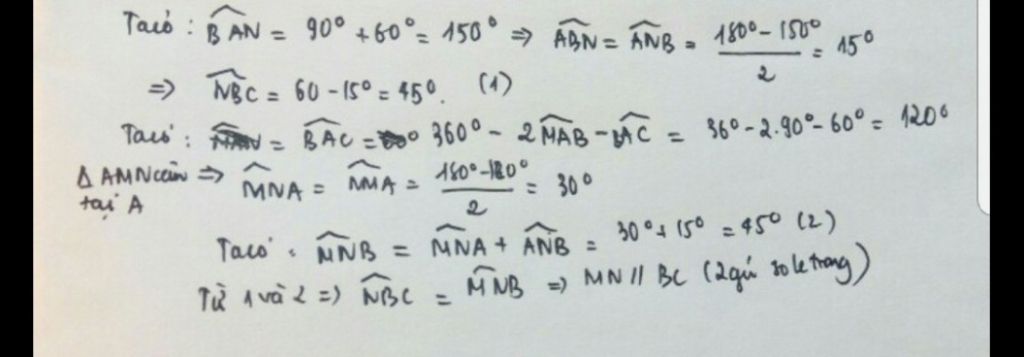 Ta có : B̂AN = 90° + 60° = 150° => ÂBN = ÂNB = (180° - 150°)/2 = 15°
=> N̂BC = 60 - 15° = 45°. (1)
Ta có : = B̂AC = 360° - 2M̂AB - B̂AC = 360 - 2.90° - 60° = 120°
Δ AMN cân => M̂NA = N̂MA = (180° - 120°)/2 = 30°
tại A
Ta có : M̂NB = M̂NA + ÂNB = 30° + 15° = 45° (2)
Từ 1 và 2 => N̂BC = M̂NB => MN // BC (2 góc so le trong)